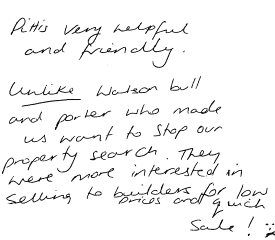 Pittis very helpful
and friendly.
Unlike Watson bull
and porter who made
us want to stop our
property search. They
were more interested in
selling to builders for low
prices and quick
Sale!